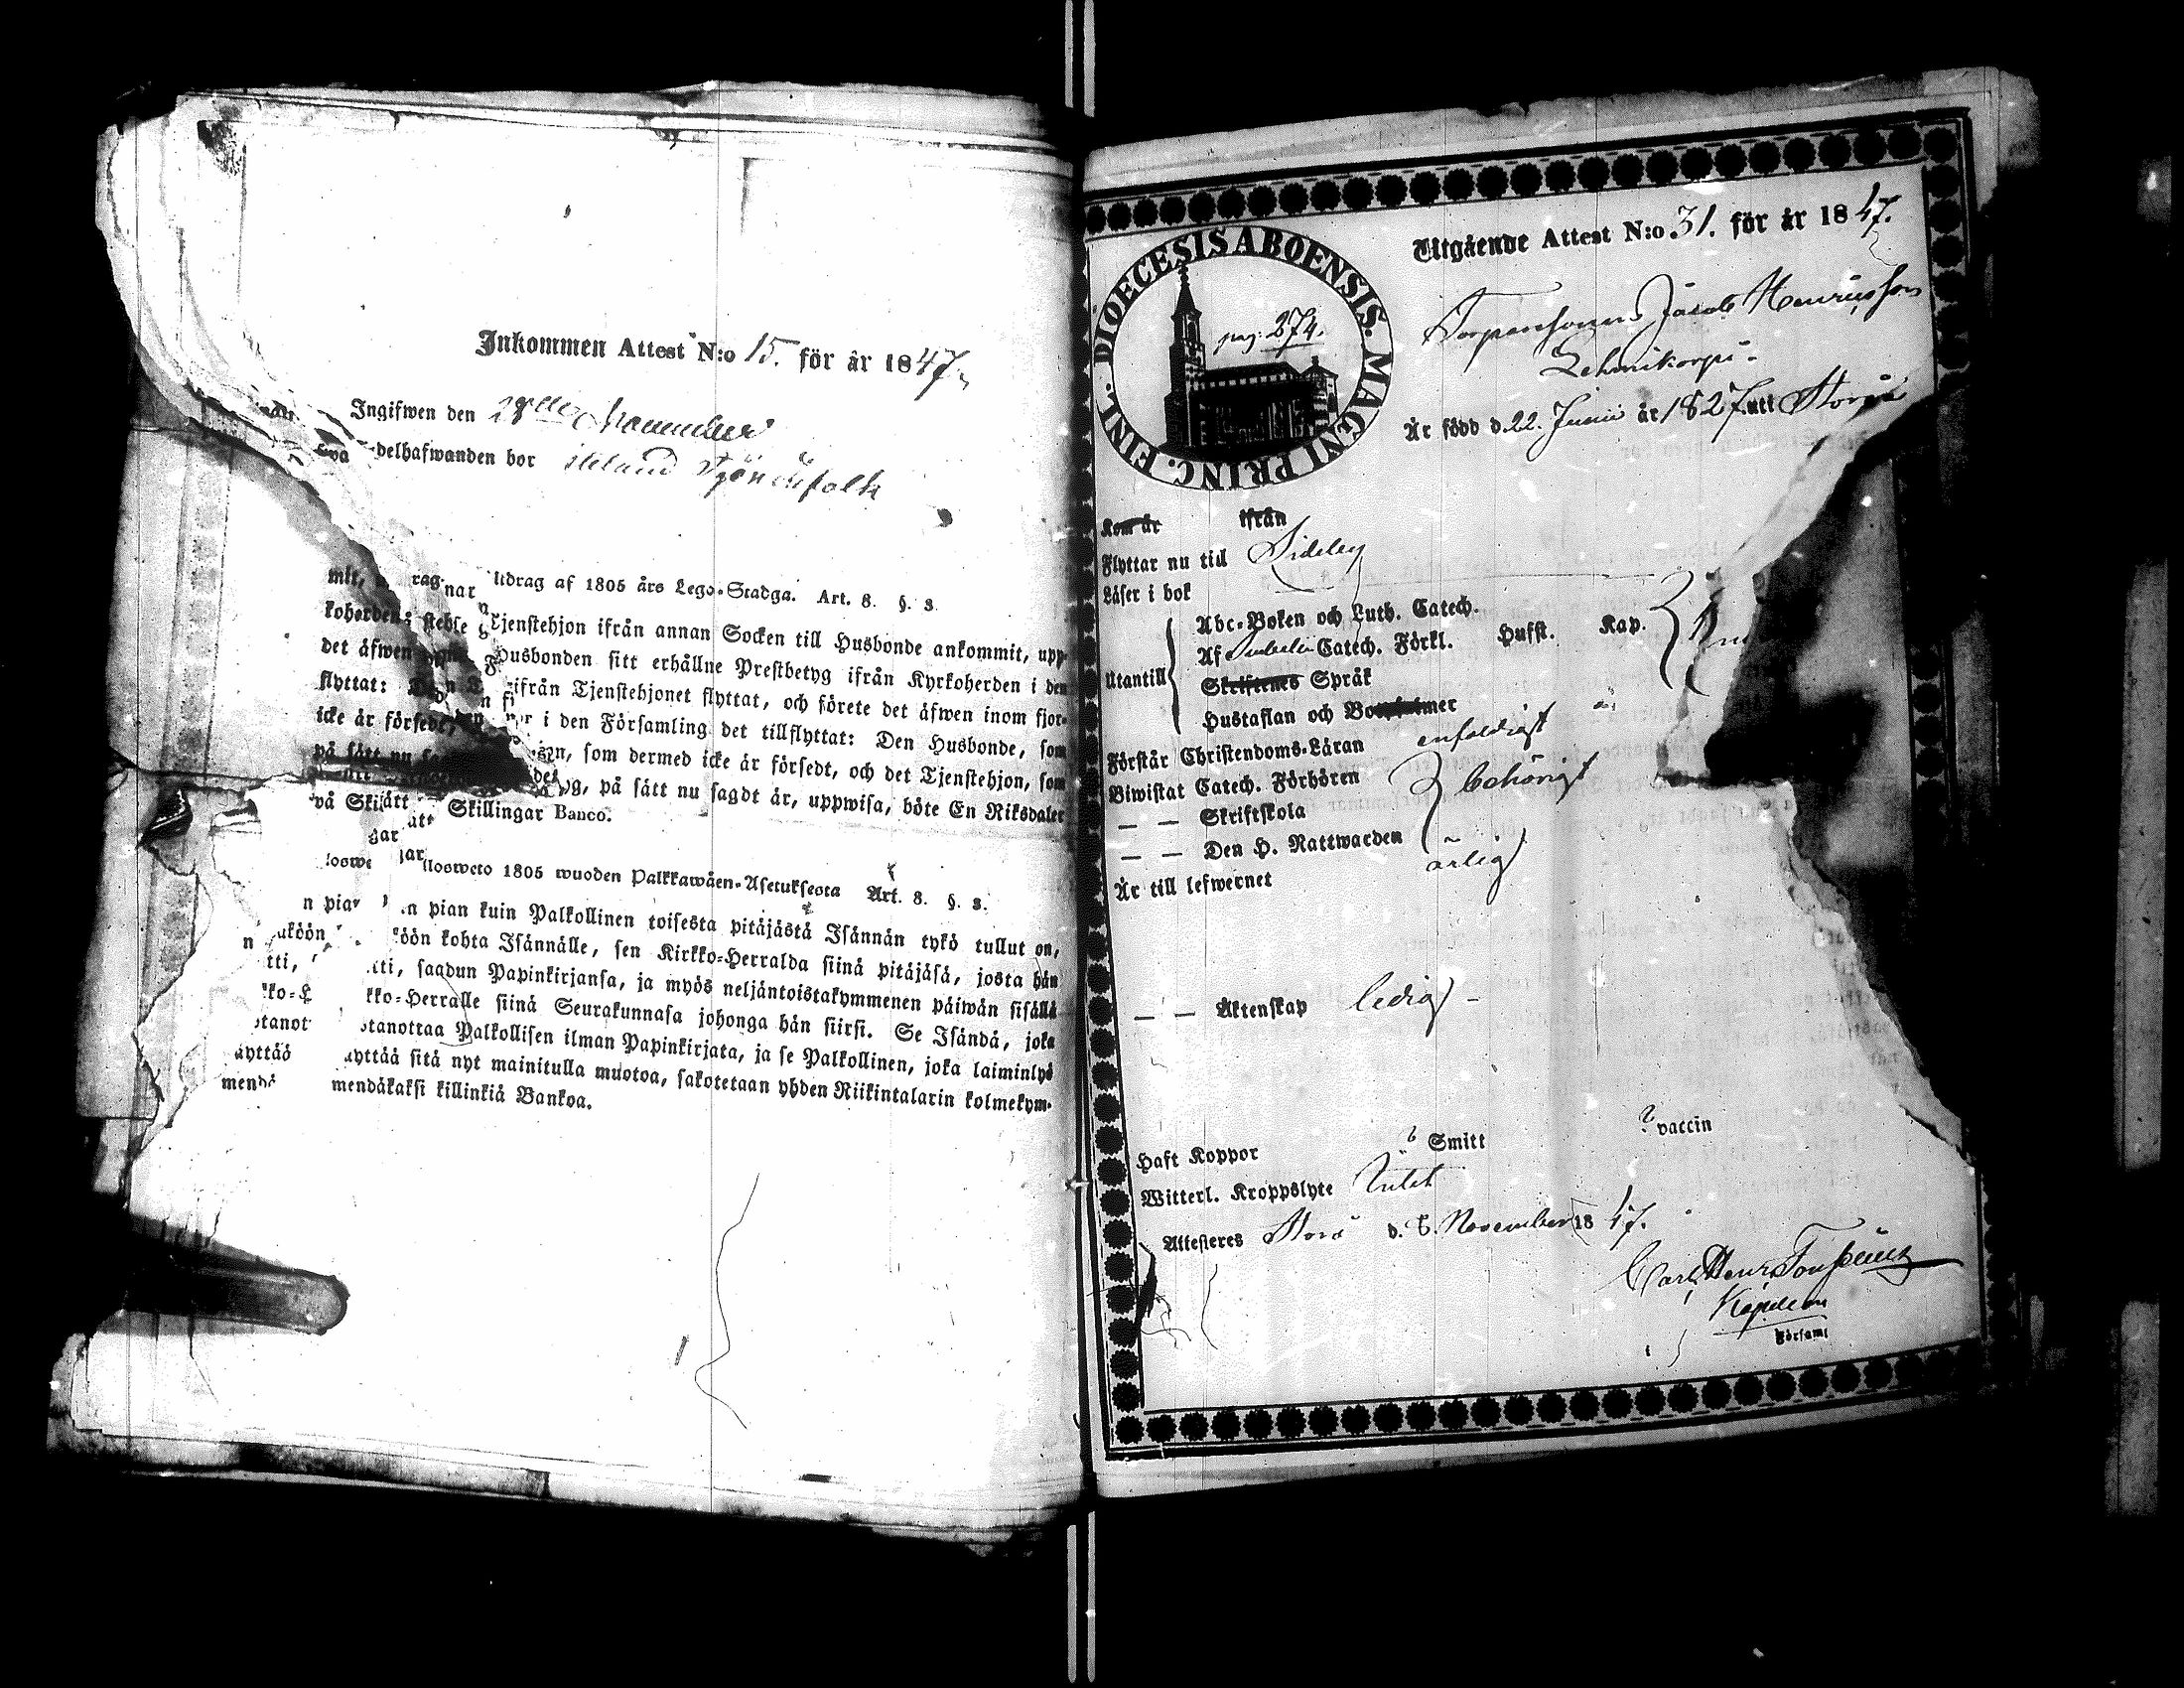 Inkommen Attest N:o 15. för år 1847.
Ingifwen den 28de November
delhafwanden bor ibland
Utdrag af 1805 års Lego-Stadga. Art. 8. §. 3.
Tjenstehjon ifrån annan Socken till Husbonde ankommit, upp-
Husbonden sitt erhållne Prestbetyg ifrån Kyrkoherden i den
ifrån Tjenstehjonet flyttat, och förete det äfwen inom fjor-
i den Församling det tillflyttat: Den Husbonde, som
som dermed icke är försedt, och det Tjenstehjon, som
på sätt nu sagdt är, uppwisa, böte En Riksdaler
Skillingar Banco.
1805 wuoden Palkkawäen-Asetuksesta Art. 8. §. 3.
pian kuin Palkollinen toisesta pitäjästä Isännän tykö tullut on,
kohta Isännälle, sen Kirkko-Herralda siinä pitäjäsä, josta hän
saadun Papinkirjansa, ja myös neljäntoistakymmenen päiwän sisällä
kko-Herralle siinä Seurakunnasa johonga hän siirsi. Se Isändä, joka
otanottaa Palkollisen ilman Papinkirjata, ja se Palkollinen, joka laiminlyö
äyttää sitä nyt mainitulla muotoa, sakotetaan yhden Riikintalarin kolmekym-
mendäkaksi killinkiä Bankoa.
DIOECESIS ABOENSIS. MAGNI PRINC. FINL.
pag. 274.
Utgående Attest N:o 31. för år 1847.
Torparesonen Jacob Henricsson
Är född d. 22. Junii år 1827. att Storå
Kom år ifrån
Flyttar nu till Sideby
Läser i bok
Abc-Boken och Luth. Catech.
Utantill Af Catech. Förkl. Husst. Kap.
Skriftenes Språk
Hustaflan och
Förstår Christendoms-Läran enfaldigt
Biwistat Catech. Förhören behörigt
— — Skriftskola
— — Den H. Nattwarden
Är till lefwernet ärlig
— — Äktenskap ledig -
Haft Koppor ? Smitt ? vaccin
Witterl. Kroppslyte Intet
Attesteres Storå d. 6. November 1847.
Carl Henr.
Kapellan
Församl